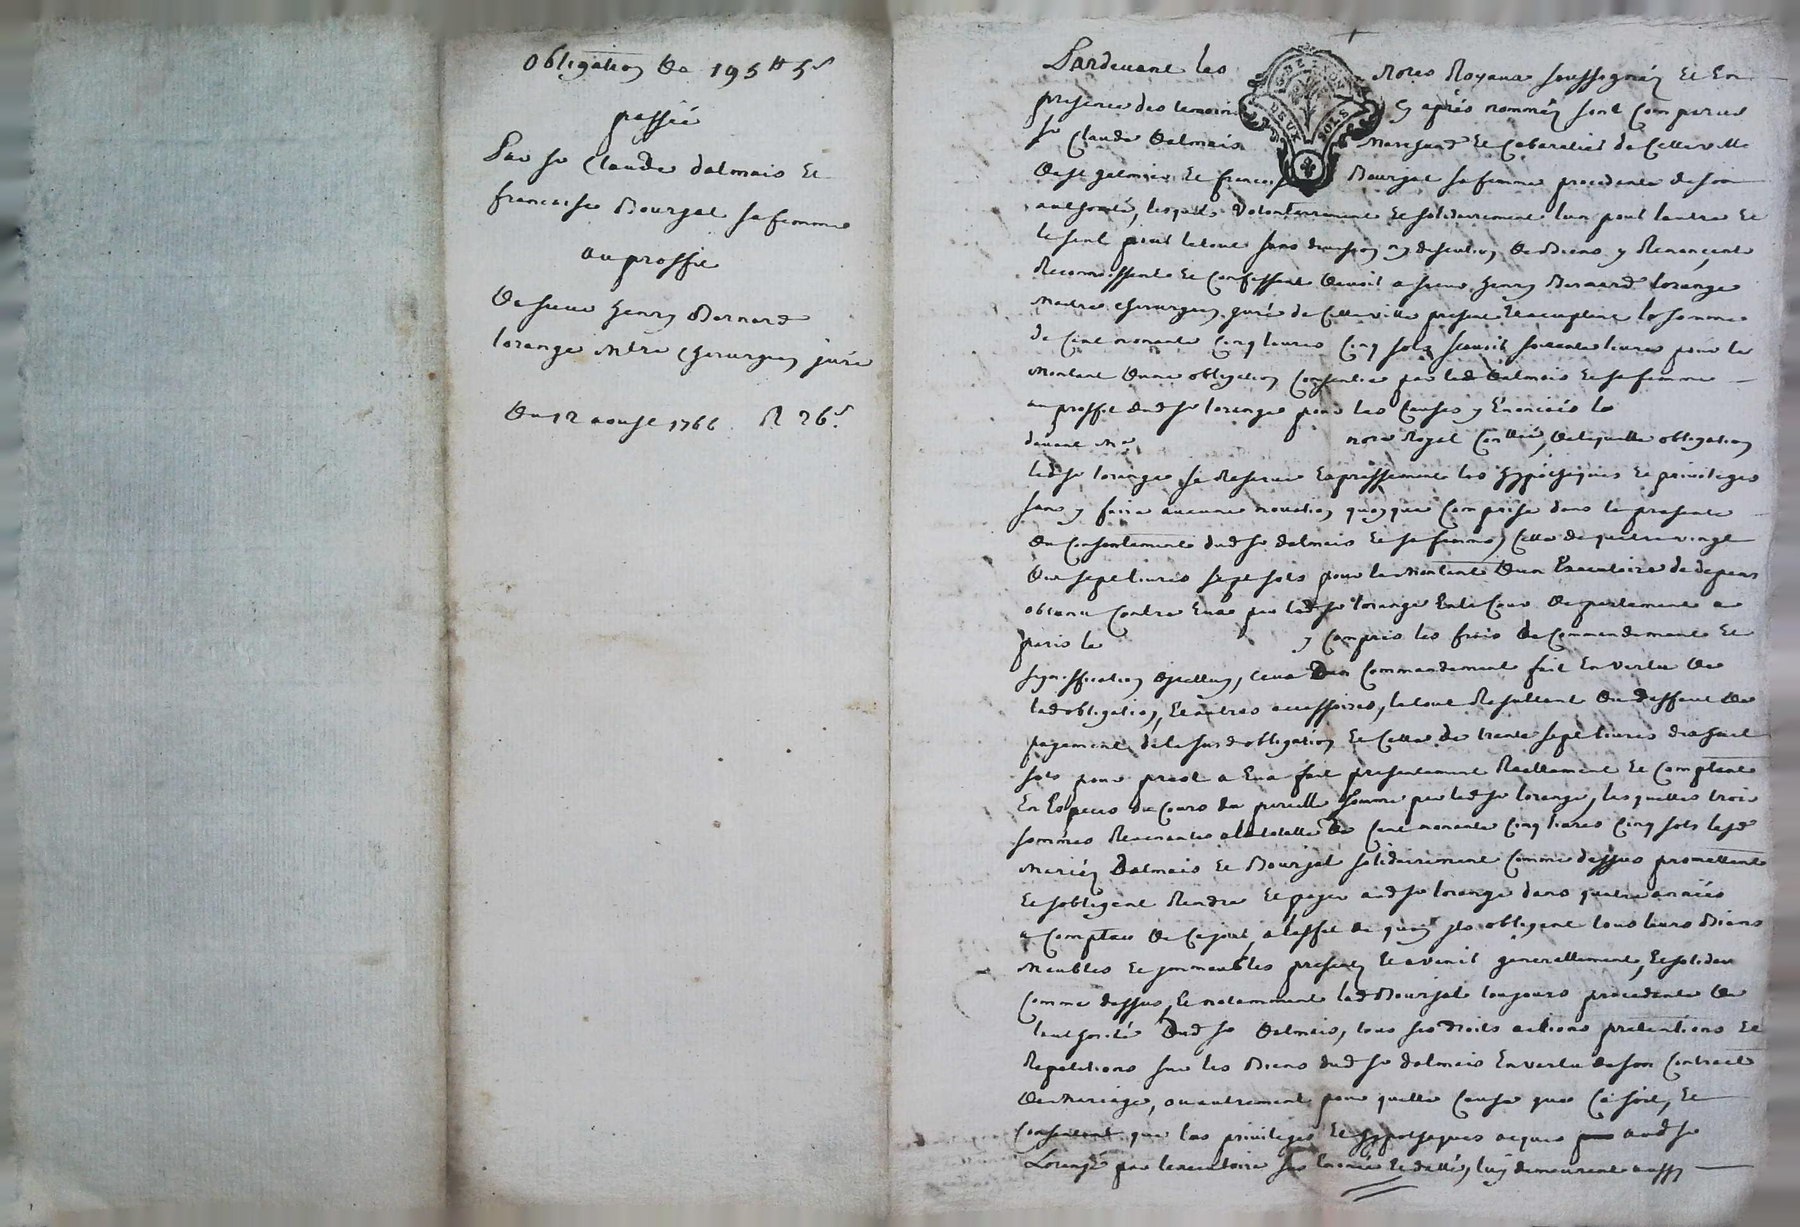 Obligation De 195 ₶ 5 s
passée
Par sr Claude dalmais Et
francoise Bourjat sa femme
au proffit
De sieur henry Bernard
lorange mtre chirurgien juré
Du 12 aoust 1766 R 26 s.
Pardevant les Nores Royaux soussignéz Et En
presence des temoins Cy aprés nomméz sont Comparus
sr Claude Dalmais Marchand Et Cabaretier de Cette ville
De st galmier Et francoise Bourjat sa femme procedante de son
authorité, lesquels Volontairement Et solidairement lun pour lautre Et
le seul pour le tout sans division ny discution De Biens y Renonçent
Reconnoissent Et Confessent Devoir a sieur henry Bernard lorange
Maitre chirurgien juré de Cette ville present Et acceptant la somme
de Cent nonante Cinq livres Cinq sols scavoir soixante livres pour le
Montant Dune obligation Consentie par led Dalmais Et sa femme
au proffit dud sr lorange pour les Causes y Enoncées le
devant Me nore Royal Conttée, De laquelle obligation
led sr lorange se Reserve Expressement les hypotheques Et privileges
sans y faire aucune novation quoyque Comprise dans la presente
Du Consentement dud sr dalmais Et sa femme, Celle de quatrevingt
Dix sept livres sept sols pour le Montant Dun Executoire de depens
obtenu Contre Eux par led sr lorange En la Cour De parlement a
paris le y Compris les frais de Commandement Et
signiffication Dicelluy, Ceux Dun Commandement fait En vertu De
lad obligation, Et autres accessoires, le tout Resultant Du deffaut De
payement de la susd obligation Et Celle de trente sept livres dix huit
sols pour prest a Eux fait presentement Reellement Et Comptant
En Especes du Cours de pareille somme par led sr lorange, lesquelles trois
sommes Revenantes a la totalle De Cent nonante Cinq livres Cinq sols lesd
mariéz Dalmais Et Bourjat solidairement Comme dessus promettent
Et sobligent Rendre Et payer aud sr lorange dans quatre années
a Compter De Ce jour, a leffet de quoy ils obligent tous leurs Biens
Meubles Et jmmeubles presentz Et avenir generallement, Et solidair
Comme dessus, Et notamment lad Bourjat toujours procedante De
lauthorité Dud sr Dalmais, tous ses droits actions pretentions Et
Repetitions sur les Biens dud sr dalmais En vertu de son Contract
De Mariage, ou autrement pour quelle Cause que Ce soit, Et
Consentent que les privileges Et hypotheques acquis aud sr
Lorange par lexecutoire sus Enoncé Et datté, luy demeurent aussy
DEUX SOLS